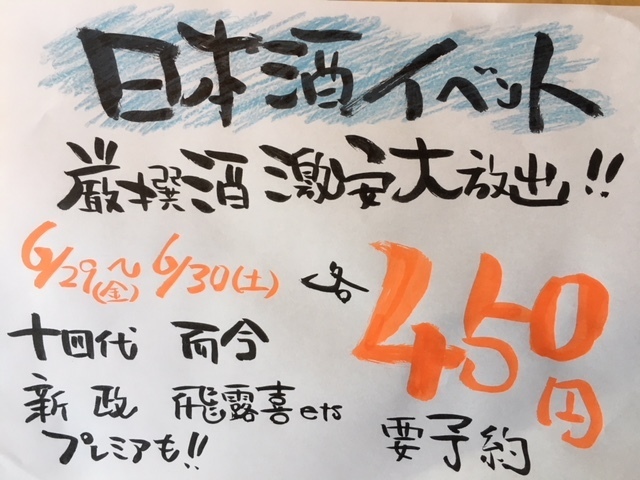 日本酒イベント
厳撰酒 激安大放出!!
6/29(金)〜6/30(土) 各450円
十四代 而今
新政 飛露喜ets
プレミアも!!
要予約